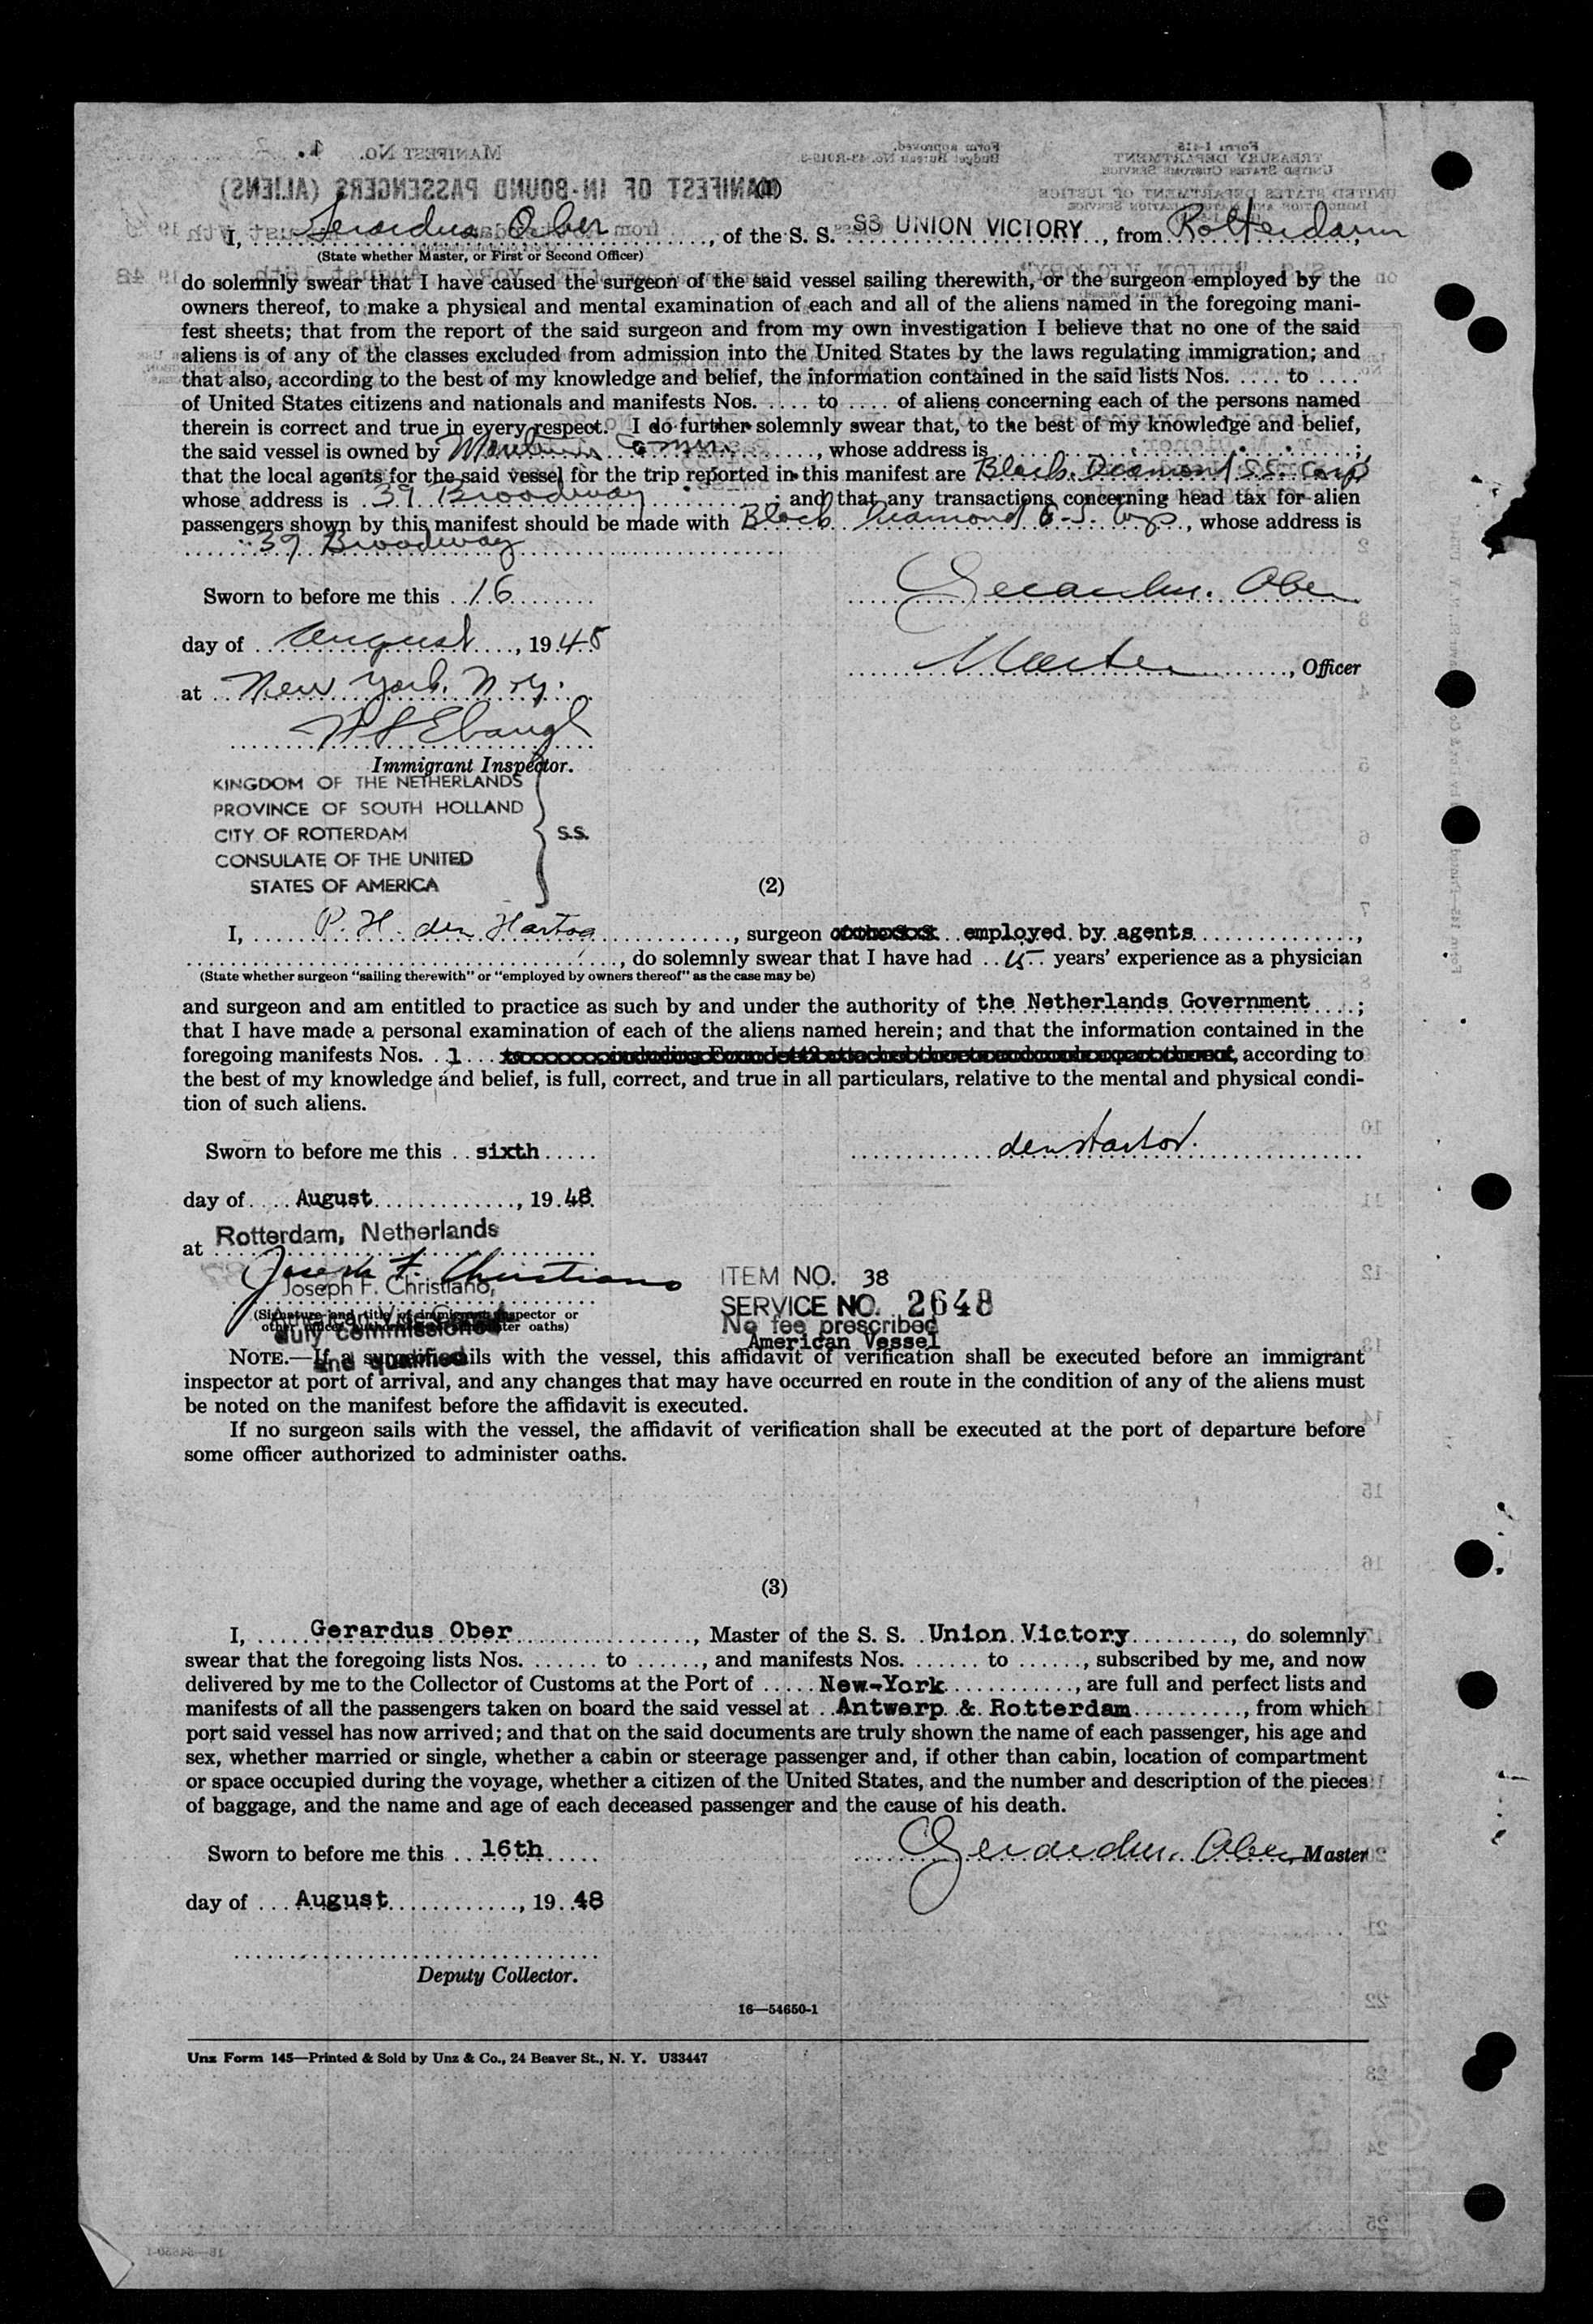 (1)
I, Gerardus Ober, of the S. S. SS UNION VICTORY, from Rotterdam,
(State whether Master, or First or Second Officer)
do solemnly swear that I have caused the surgeon of the said vessel sailing therewith, or the surgeon employed by the
owners thereof, to make a physical and mental examination of each and all of the aliens named in the foregoing mani-
fest sheets; that from the report of the said surgeon and from my own investigation I believe that no one of the said
aliens is of any of the classes excluded from admission into the United States by the laws regulating immigration; and
that also, according to the best of my knowledge and belief, the information contained in the said lists Nos. .... to ....
of United States citizens and nationals and manifests Nos. .... to .... of aliens concerning each of the persons named
therein is correct and true in every respect. I do further solemnly swear that, to the best of my knowledge and belief,
the said vessel is owned by Maritime Comm., whose address is ;
that the local agents for the said vessel for the trip reported in this manifest are Black Diamond S.S. Corp
whose address is 39 Broadway; and that any transactions concerning head tax for alien
passengers shown by this manifest should be made with Black Diamond S.S. Corp, whose address is
39 Broadway
Sworn to before me this 16
Gerardus Ober
day of August, 1948
Master, Officer
at New York, N.Y.
Immigrant Inspector.
KINGDOM OF THE NETHERLANDS
PROVINCE OF SOUTH HOLLAND
CITY OF ROTTERDAM S.S.
CONSULATE OF THE UNITED
STATES OF AMERICA
(2)
I, P. H. den Hartog, surgeon employed by agents,
, do solemnly swear that I have had 15 years' experience as a physician
(State whether surgeon "sailing therewith" or "employed by owners thereof" as the case may be)
and surgeon and am entitled to practice as such by and under the authority of the Netherlands Government;
that I have made a personal examination of each of the aliens named herein; and that the information contained in the
foregoing manifests Nos. 1 , according to
the best of my knowledge and belief, is full, correct, and true in all particulars, relative to the mental and physical condi-
tion of such aliens.
Sworn to before me this sixth
den Hartog.
day of August, 1948
at Rotterdam, Netherlands
Joseph F. Christiano
Joseph F. Christiano,
ITEM NO. 38
SERVICE NO. 2648
(Signature and title of immigrant inspector or
other officer authorized to administer oaths)
duly commissioned
and qualified
No fee prescribed
American Vessel
NOTE.—If a surgeon sails with the vessel, this affidavit of verification shall be executed before an immigrant
inspector at port of arrival, and any changes that may have occurred en route in the condition of any of the aliens must
be noted on the manifest before the affidavit is executed.
If no surgeon sails with the vessel, the affidavit of verification shall be executed at the port of departure before
some officer authorized to administer oaths.
(3)
I, Gerardus Ober, Master of the S. S. Union Victory, do solemnly
swear that the foregoing lists Nos. ....... to ......, and manifests Nos. ....... to ......, subscribed by me, and now
delivered by me to the Collector of Customs at the Port of New-York, are full and perfect lists and
manifests of all the passengers taken on board the said vessel at Antwerp & Rotterdam, from which
port said vessel has now arrived; and that on the said documents are truly shown the name of each passenger, his age and
sex, whether married or single, whether a cabin or steerage passenger and, if other than cabin, location of compartment
or space occupied during the voyage, whether a citizen of the United States, and the number and description of the pieces
of baggage, and the name and age of each deceased passenger and the cause of his death.
Sworn to before me this 16th
Gerardus Ober, Master
day of August, 1948
Deputy Collector.
16—54650-1
Unz Form 145—Printed & Sold by Unz & Co., 24 Beaver St., N. Y. U33447